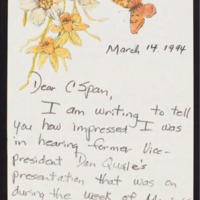 March 14, 1994
Dear C'Span,
I am writing to tell
you how impressed I was
in hearing former Vice-
president Dan Quayle's
presentation that was on
during the week of